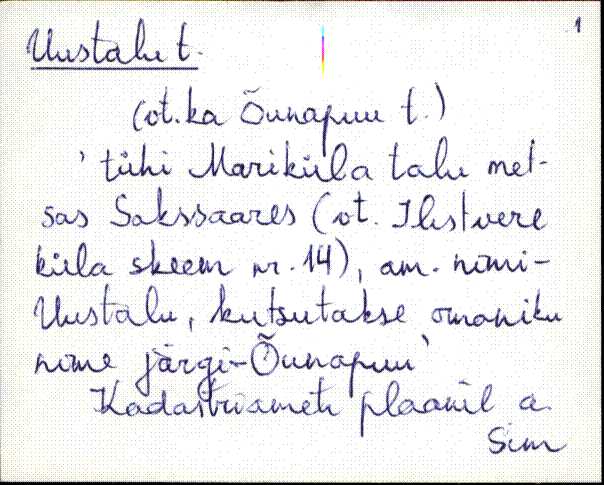 1
Uustalu t.
(vt. ka Õunapuu t.)
' tühi Mariküla talu met-
sas Sakssaares (vt. Ilistvere
küla skeem nr. 14), am. nimi-
Uustalu, kutsutakse omaniku
nime järgi-Õunapuu'
Kadastriameti plaanil a.